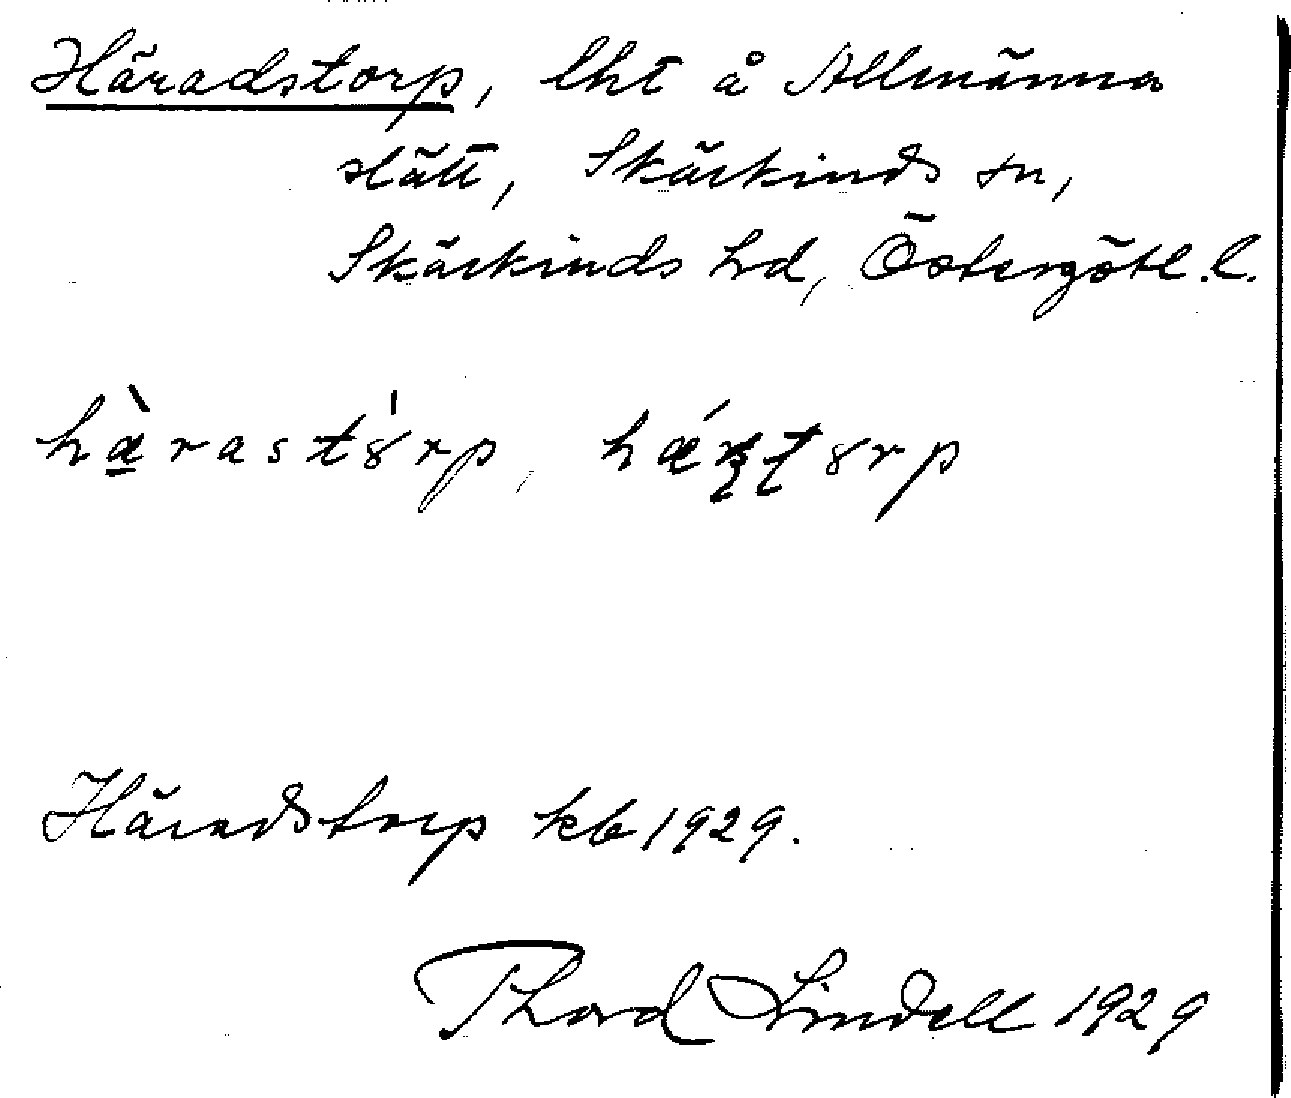 Häradstorp, lht å Allmänna
slätt, Skärkinds sn,
Skärkinds hd, Östergötl. l.
hæ̀rastȣ́rp, hǽʂʈȣrp
Häradstorp kb 1929.
Thord Lindell 1929